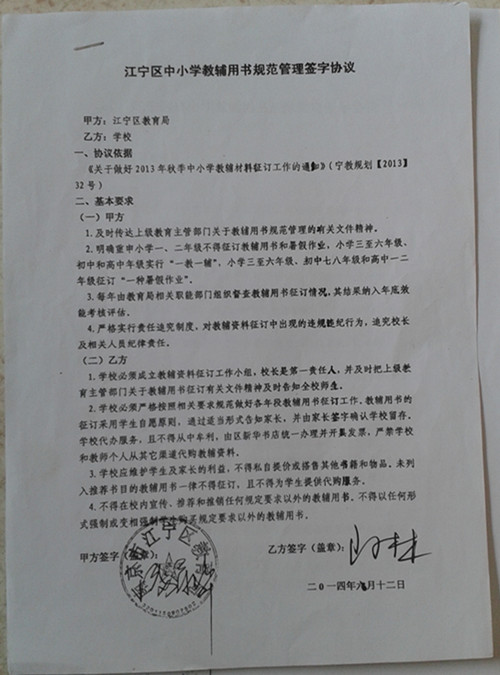 江宁区中小学教辅用书规范管理签字协议
甲方：江宁区教育局
乙方：学校
一、协议依据
《关于做好2013年秋季中小学教辅材料征订工作的通知》（宁教规划【2013】
32号）
二、基本要求
（一）甲方
1.及时传达上级教育主管部门关于教辅用书规范管理的有关文件精神。
2.明确重申小学一、二年级不得征订教辅用书和暑假作业，小学三至六年级、
初中和高中年级实行“一教一辅”，小学三至六年级、初中七八年级和高中一二
年级征订“一种暑假作业”。
3.每年由教育局相关职能部门组织督查教辅用书征订情况，其结果纳入年底效
能考核评估。
4.严格实行责任追究制度，对教辅资料征订中出现的违规违纪行为，追究校长
及相关人员纪律责任。
（二）乙方
1.学校必须成立教辅资料征订工作小组，校长是第一责任人，并及时把上级教
育主管部门关于教辅用书征订有关文件精神及时告知全校师生。
2.学校必须严格按照相关要求规范做好各年段教辅用书征订工作、教辅用书的
征订采用学生自愿原则，通过适当形式告知家长，并由家长签字确认学校留存。
学校代办服务，且不得从中牟利，由区新华书店统一办理并开具发票，严禁学校
和教师个人从其它渠道代购教辅资料。
3.学校应维护学生及家长的利益，不得私自提价或搭售其他书籍和物品。未列
入推荐书目的教辅用书一律不得征订，且不得为学生提供代购服务。
4.不得在校内宣传、推荐和推销任何规定要求以外的教辅用书。不得以任何形
式强制或变相强制学生购买规定要求以外的教辅用书。
甲方签字（盖章）：
乙方签字（盖章）：
江宁区
二〇一四年九月十二日